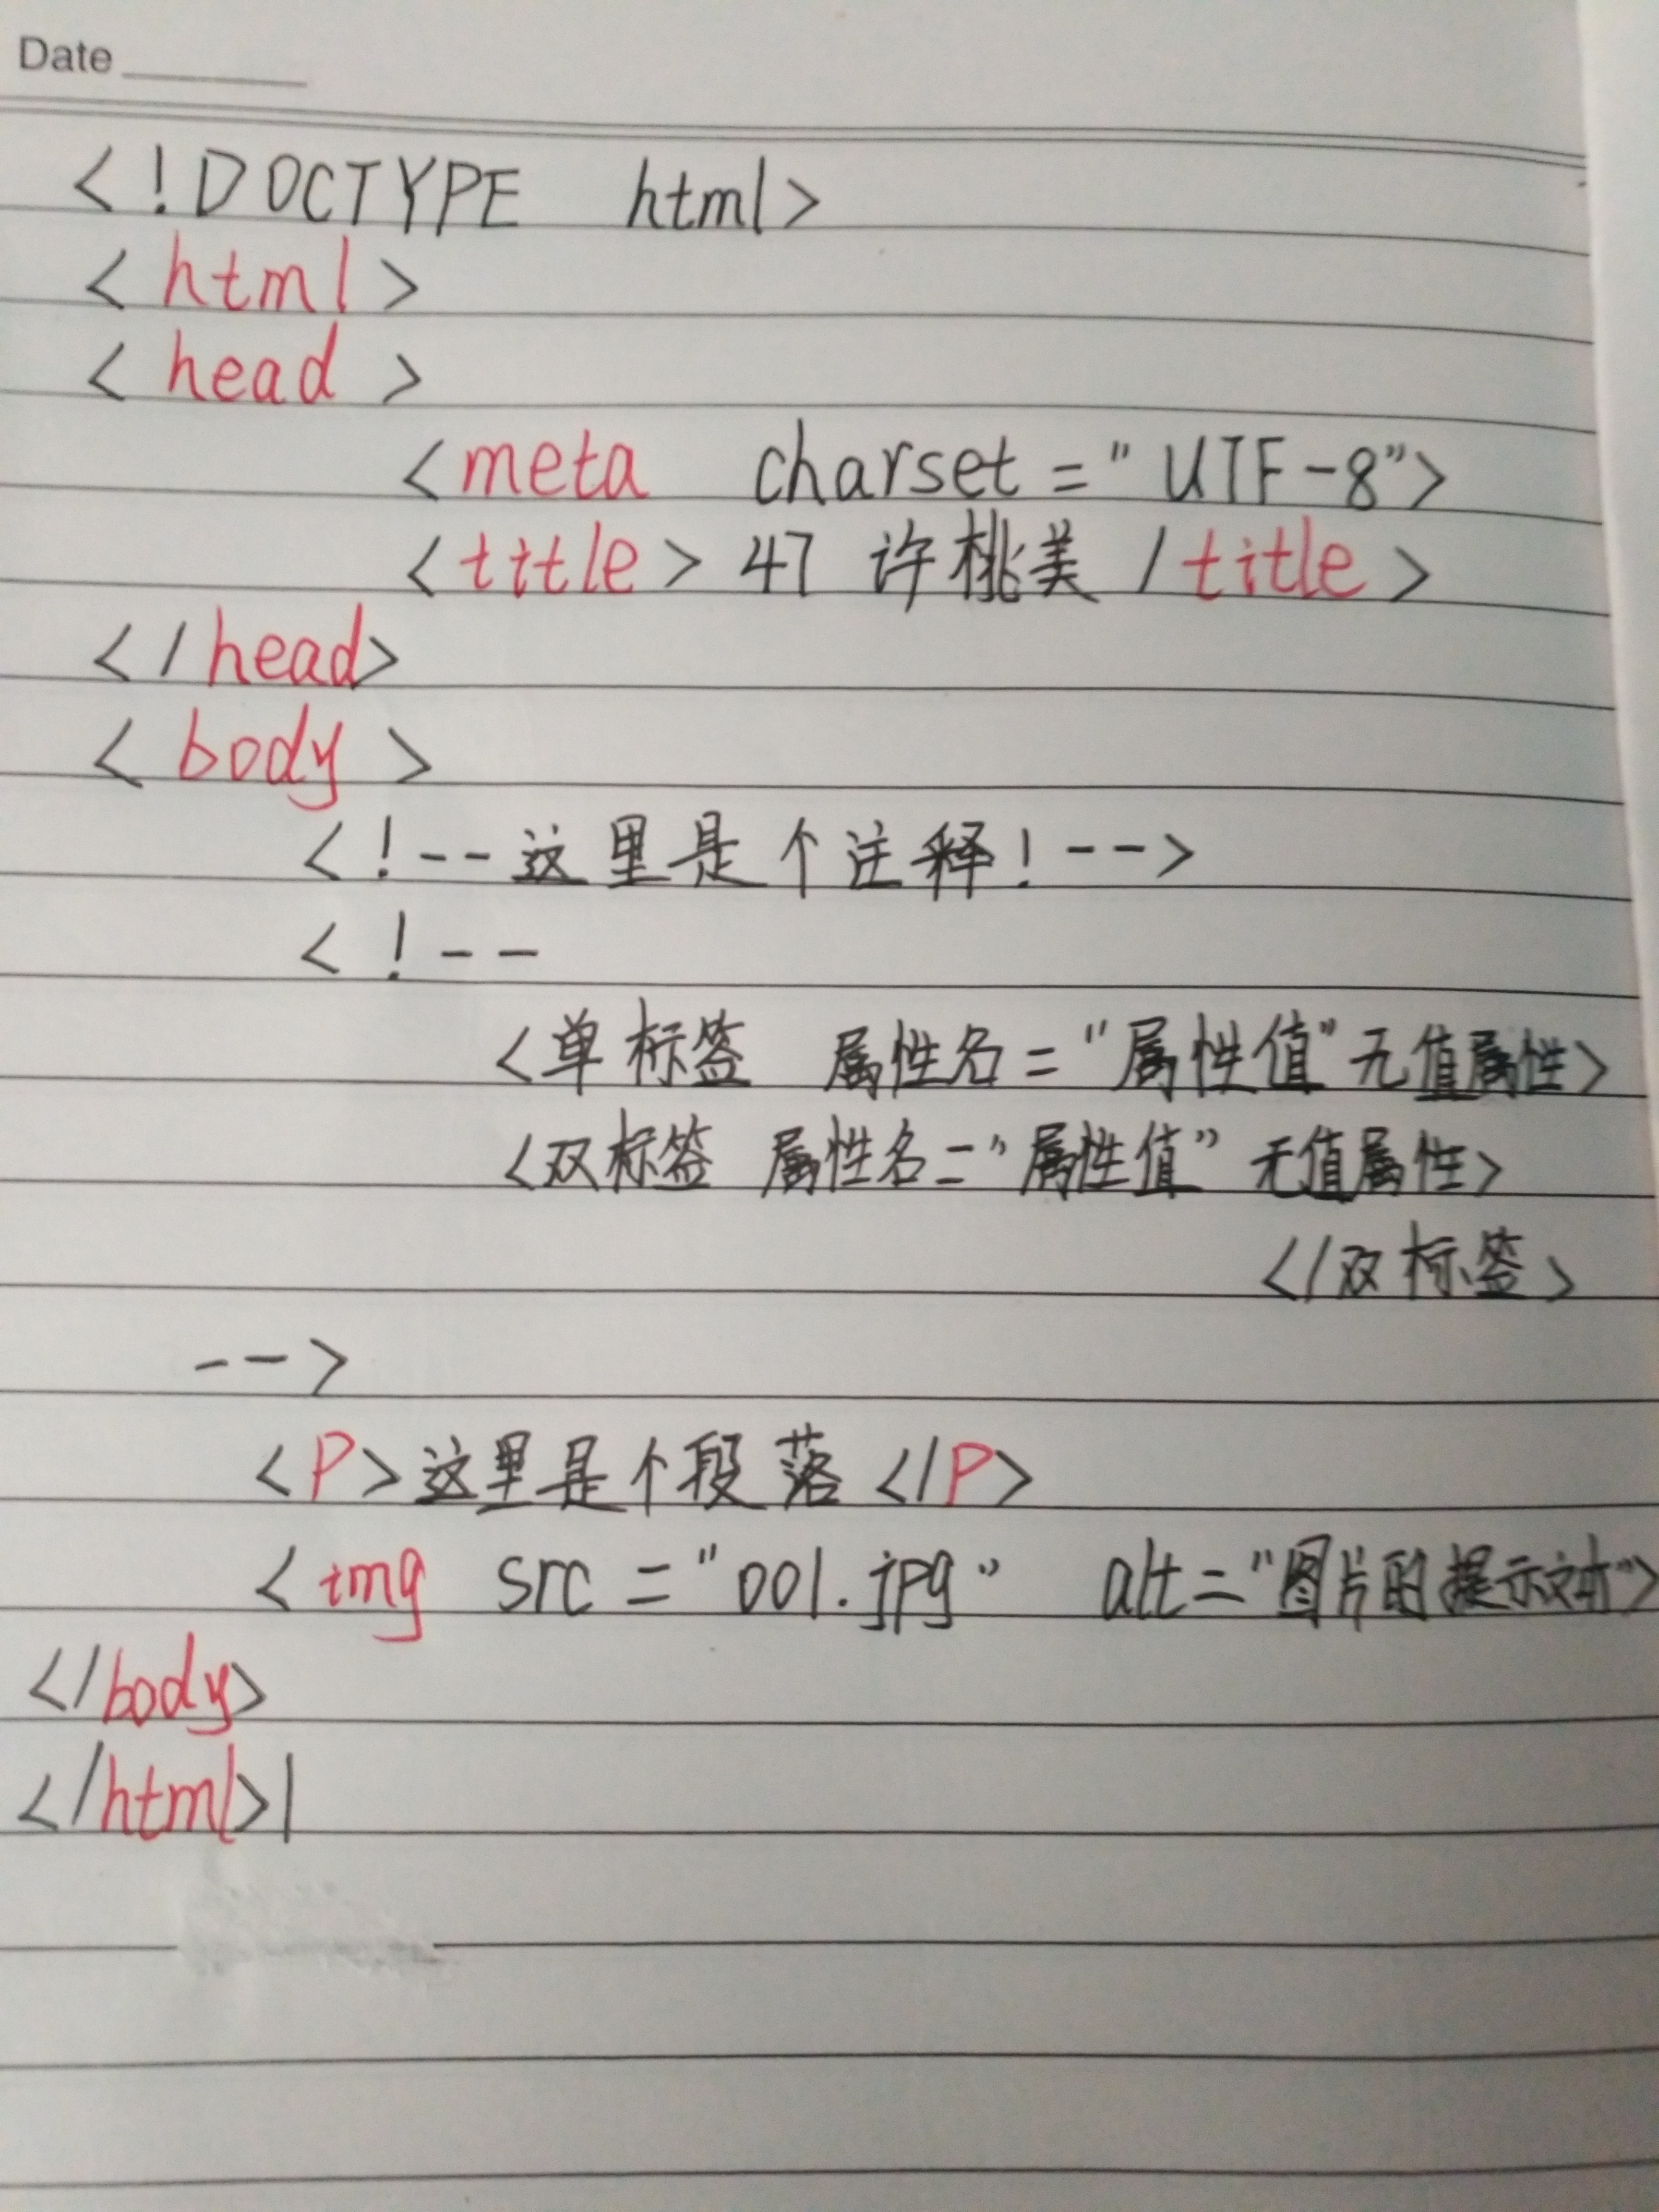 Date
<!DOCTYPE html>
<html>
<head>
<meta charset="UTF-8">
<title>47 许桃美 /title>
</head>
<body>
<!--这里是个注释!-->
<!--
<单标签 属性名="属性值"无值属性>
<双标签 属性名="属性值" 无值属性>
</双标签>
-->
<P>这里是个段落</P>
<img src="001.jpg" alt="图片的提示文本">
</body>
</html>|